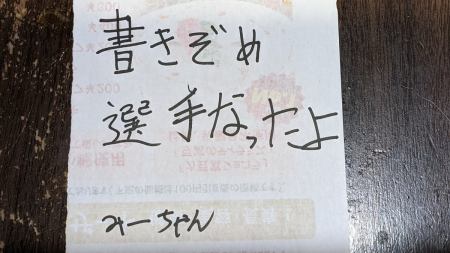 書きぞめ
選手なったよ
みーちゃん